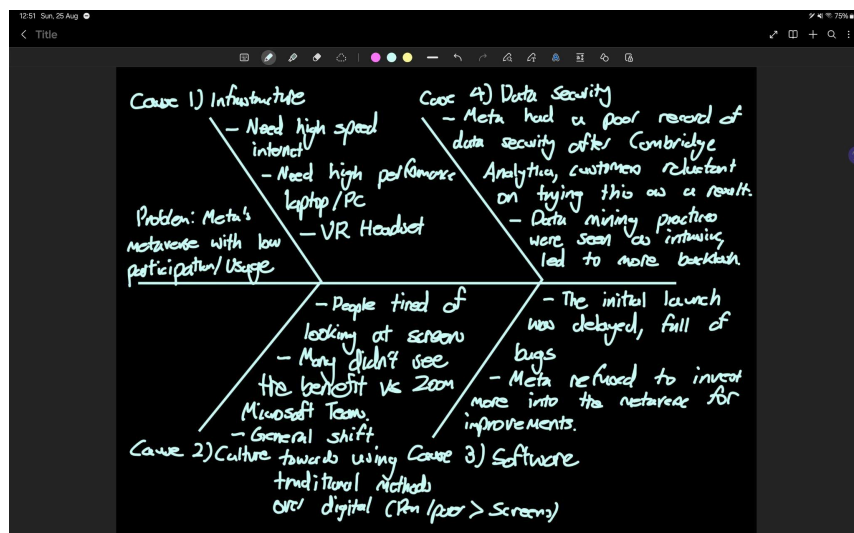 12:51 Sun, 25 Aug
75%
Title
Cause 1) Infrastructure
- Need high speed
internet
- Need high performance
laptop/PC
- VR Headset
Problem: Meta's
metaverse with low
participation/usage
Case 4) Data security
- Meta had a poor record of
data security after Cambridge
Analytica, customers reluctant
on trying this as a result.
- Data mining practices
were seen as intrusive,
led to more backlash.
- People tired of
looking at screen
- Many didn't see
the benefit vs Zoom
Microsoft Teams.
- General shift
Cause 2) Culture towards using
traditional methods
over digital (Pen/paper > Screens)
- The initial launch
was delayed, full of
bugs
- Meta refused to invest
more into the metaverse for
improvements.
Cause 3) Software